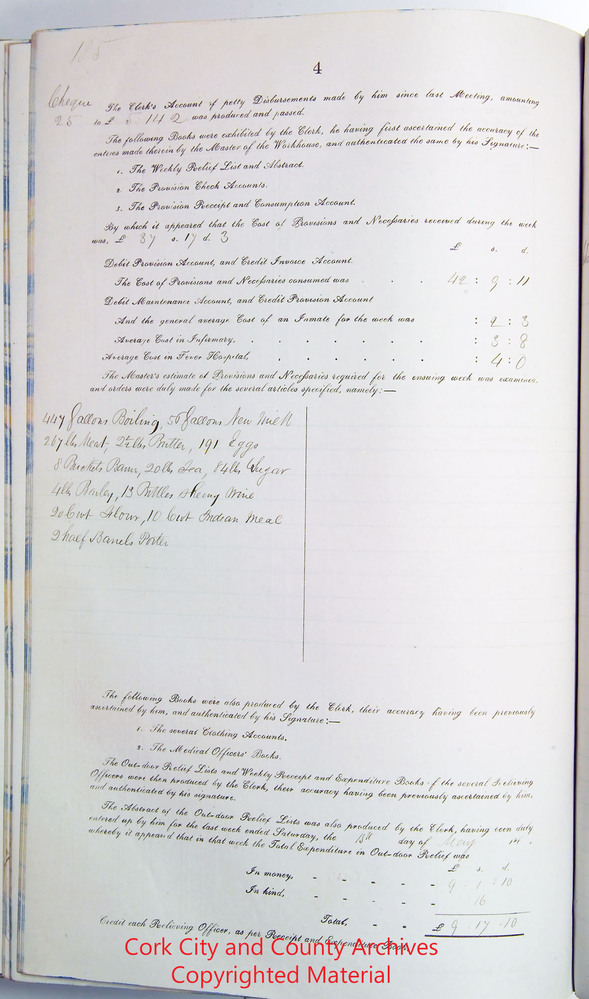 185
4
Cheque
25
The Clerk's Account of petty Disbursements made by him since last Meeting, amounting
to £ 5 14 2 was produced and passed.
The following Books were exhibited by the Clerk, he having first ascertained the accuracy of the
entries made therein by the Master of the Workhouse, and authenticated the same by his Signature:—
1. The Weekly Relief List and Abstract.
2. The Provision Check Accounts.
3. The Provision Receipt and Consumption Account.
By which it appeared that the Cost of Provisions and Necessaries received during the week
was, £ 37 s. 17 d. 3
£ s. d.
Debit Provision Account, and Credit Invoice Account.
The Cost of Provisions and Necessaries consumed was . . . 42 : 9 : 11
Debit Maintenance Account, and Credit Provision Account
And the general average Cost of an Inmate for the week was : 2 : 3
Average Cost in Infirmary, . . . . . . : 3 : 8
Average Cost in Fever Hospital, . . . . . : 4 : 0
The Master's estimate of Provisions and Necessaries required for the ensuing week was examined,
and orders were duly made for the several articles specified, namely:—
447 Gallons Boiling, 56 Gallons New Milk
267 lbs Meat, 2½ lbs Butter, 191 Eggs
8 Buckets Barm, 20 lbs Tea, 84 lbs Sugar
4 lbs Barley, 13 Bottles Sherry Wine
20 Cwt Flour, 10 Cwt Indian Meal
2 half Barrels Porter
The following Books were also produced by the Clerk, their accuracy having been previously
ascertained by him, and authenticated by his Signature:—
1. The several Clothing Accounts.
2. The Medical Officers' Books.
The Out-door Relief Lists and Weekly Receipt and Expenditure Books of the several Relieving
Officers were then produced by the Clerk, their accuracy having been previously ascertained by him,
and authenticated by his signature.
The Abstract of the Out-door Relief Lists was also produced by the Clerk, having been duly
entered up by him for the last week ended Saturday, the day of May
whereby it appeared that in that week the Total Expenditure in Out-door Relief was
£ s. d.
In money, - - - - 9 : 1 : 10
In kind, - - - - 16
Total, - - £ 9 - 17 - 10
Credit each Relieving Officer, as per Receipt and Expenditure Book.
Cork City and County Archives
Copyrighted Material